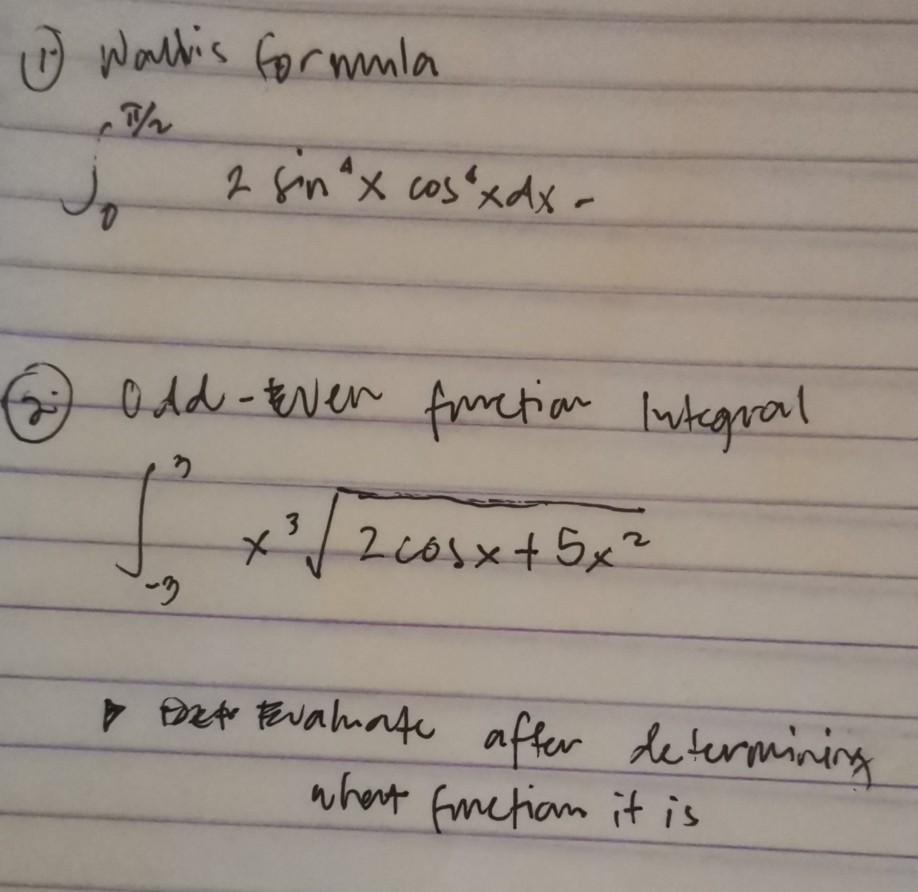 ① Wallis formula
∫₀^π/2 2 sin⁴x cos⁶xdx -
② Odd-Even function Integral
∫₋₃³ x³√(2cosx+5x²)
Evaluate after determining
what function it is